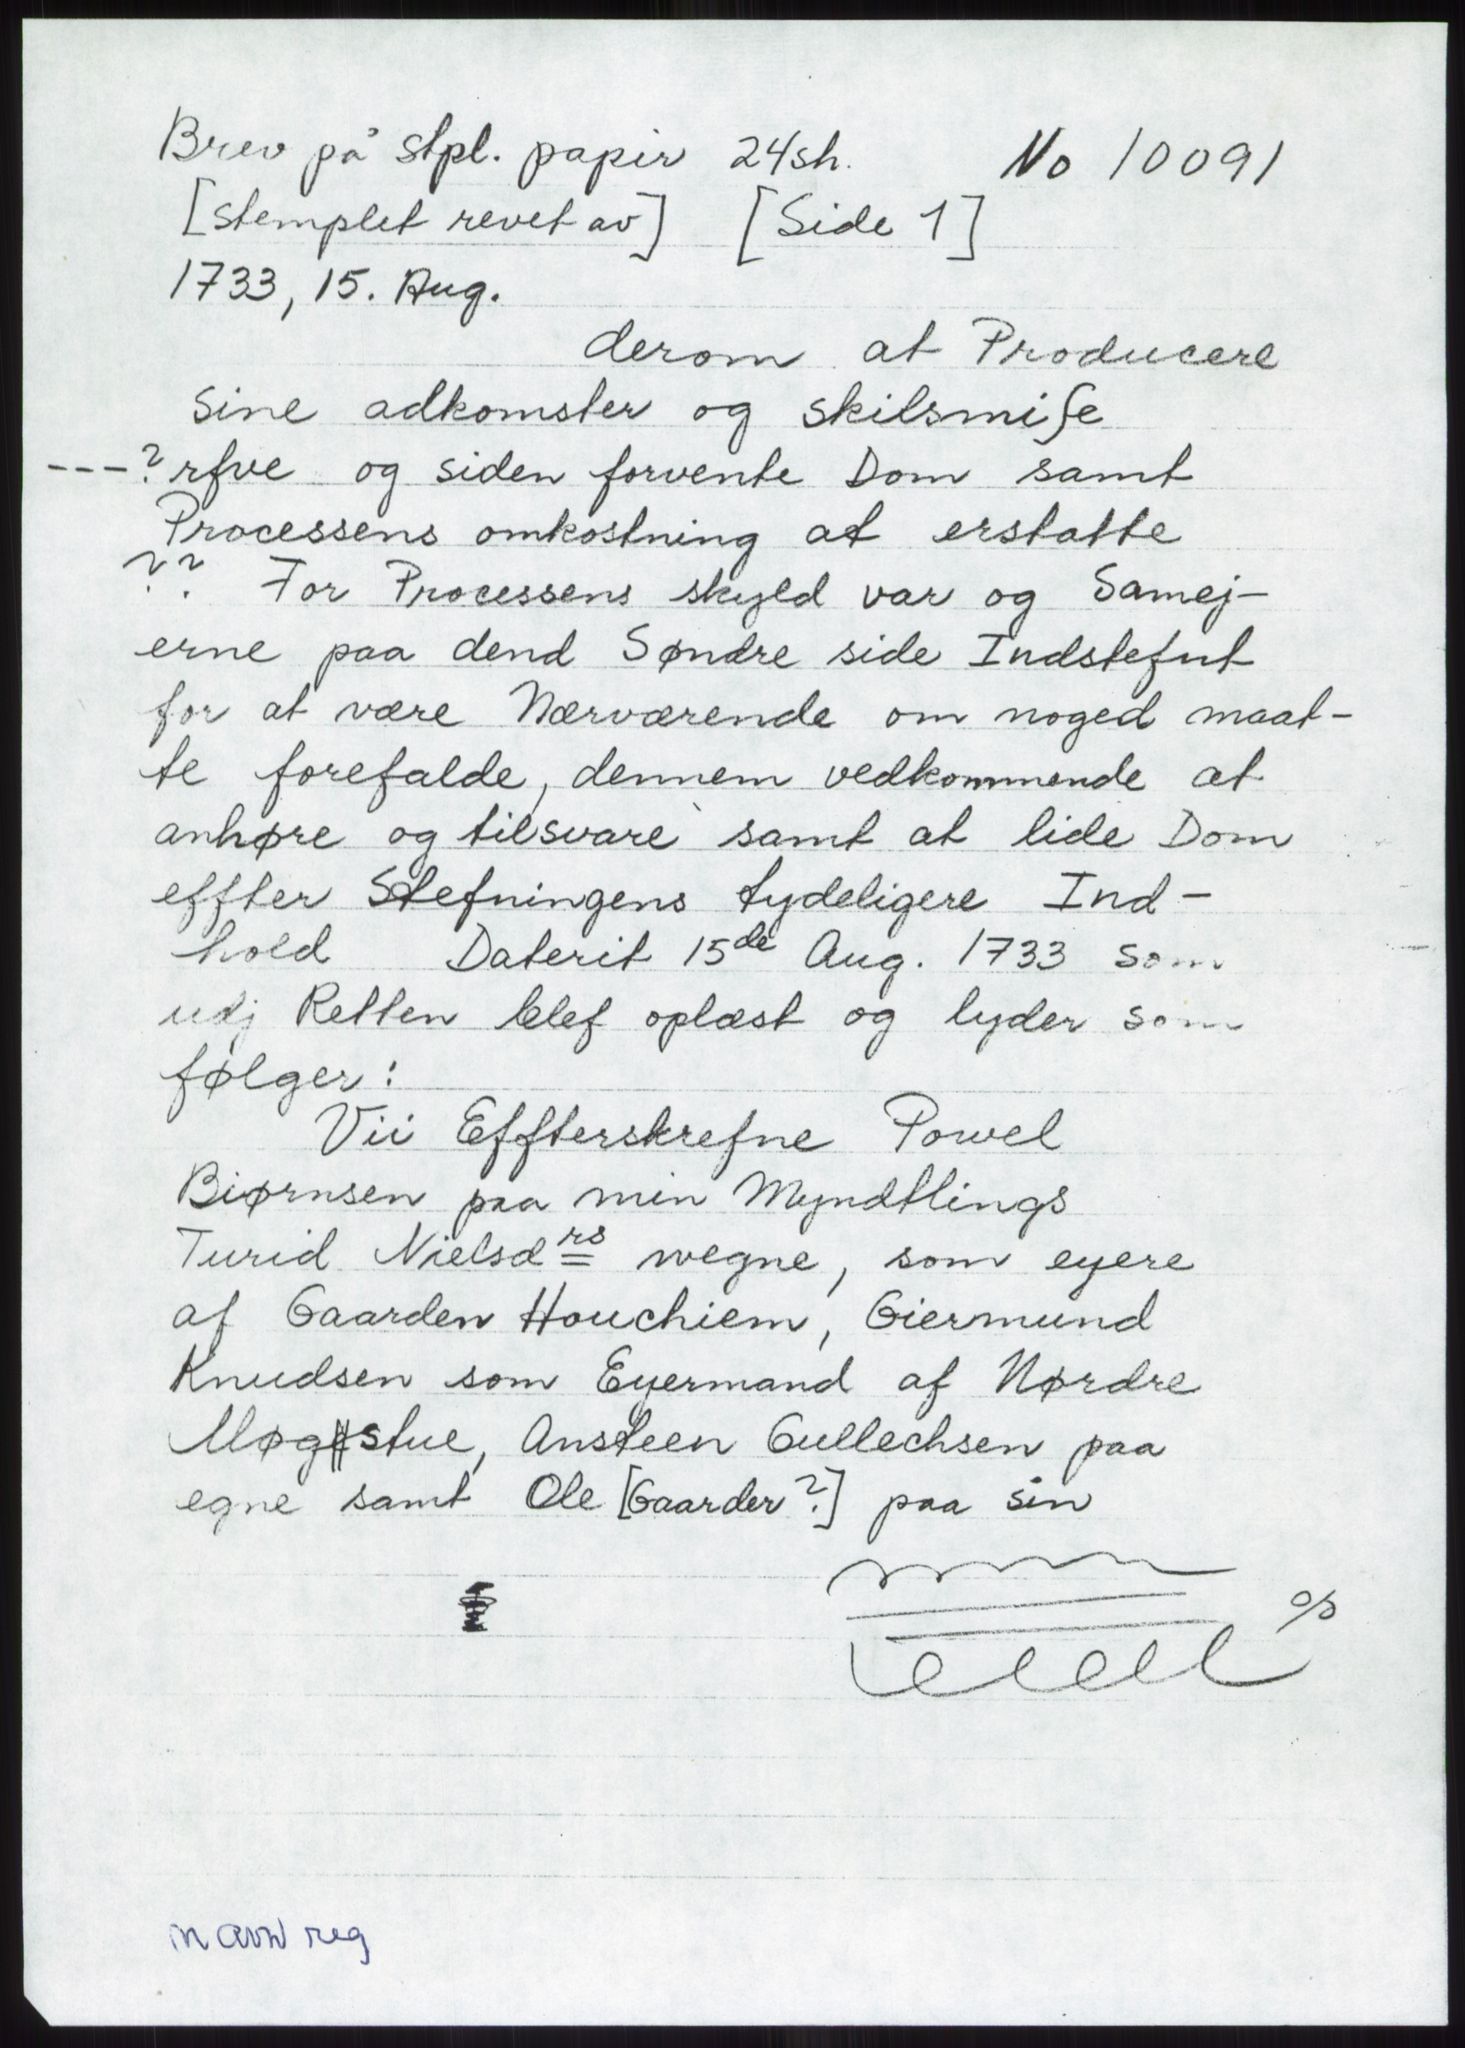 Brev på stpl. papir 24sh. No 10091
[stemplet revet av] [Side 1]
1733, 15. Aug.
derom at Producere
sine adkomster og skilsmiſe
---? rfve og siden forvente Dom samt
Processens omkostning at erstatte
?? For Processens skyld var og Samej-
erne paa dend Søndre side Indstefnt
for at være Nærværende om noged maat-
te forefalde, dennem vedkommende at
anhøre og tilsvare samt at lide Dom
effter Stefningens tydeligere Ind-
hold Daterit 15de Aug. 1733 som
udj Retten blef oplæst og lyder som
følger:
Vii Effterskrefne Powel
Biørnsen paa min Myndtlings
Turid Nielsdrs wegne, som eyere
af Gaarden Houchiem, Giermund
Knudsen som Eyermand af Nørdre
Møgstue, Ansteen Gullechsen paa
egne samt Ole [Gaarder?] paa sin
navn reg